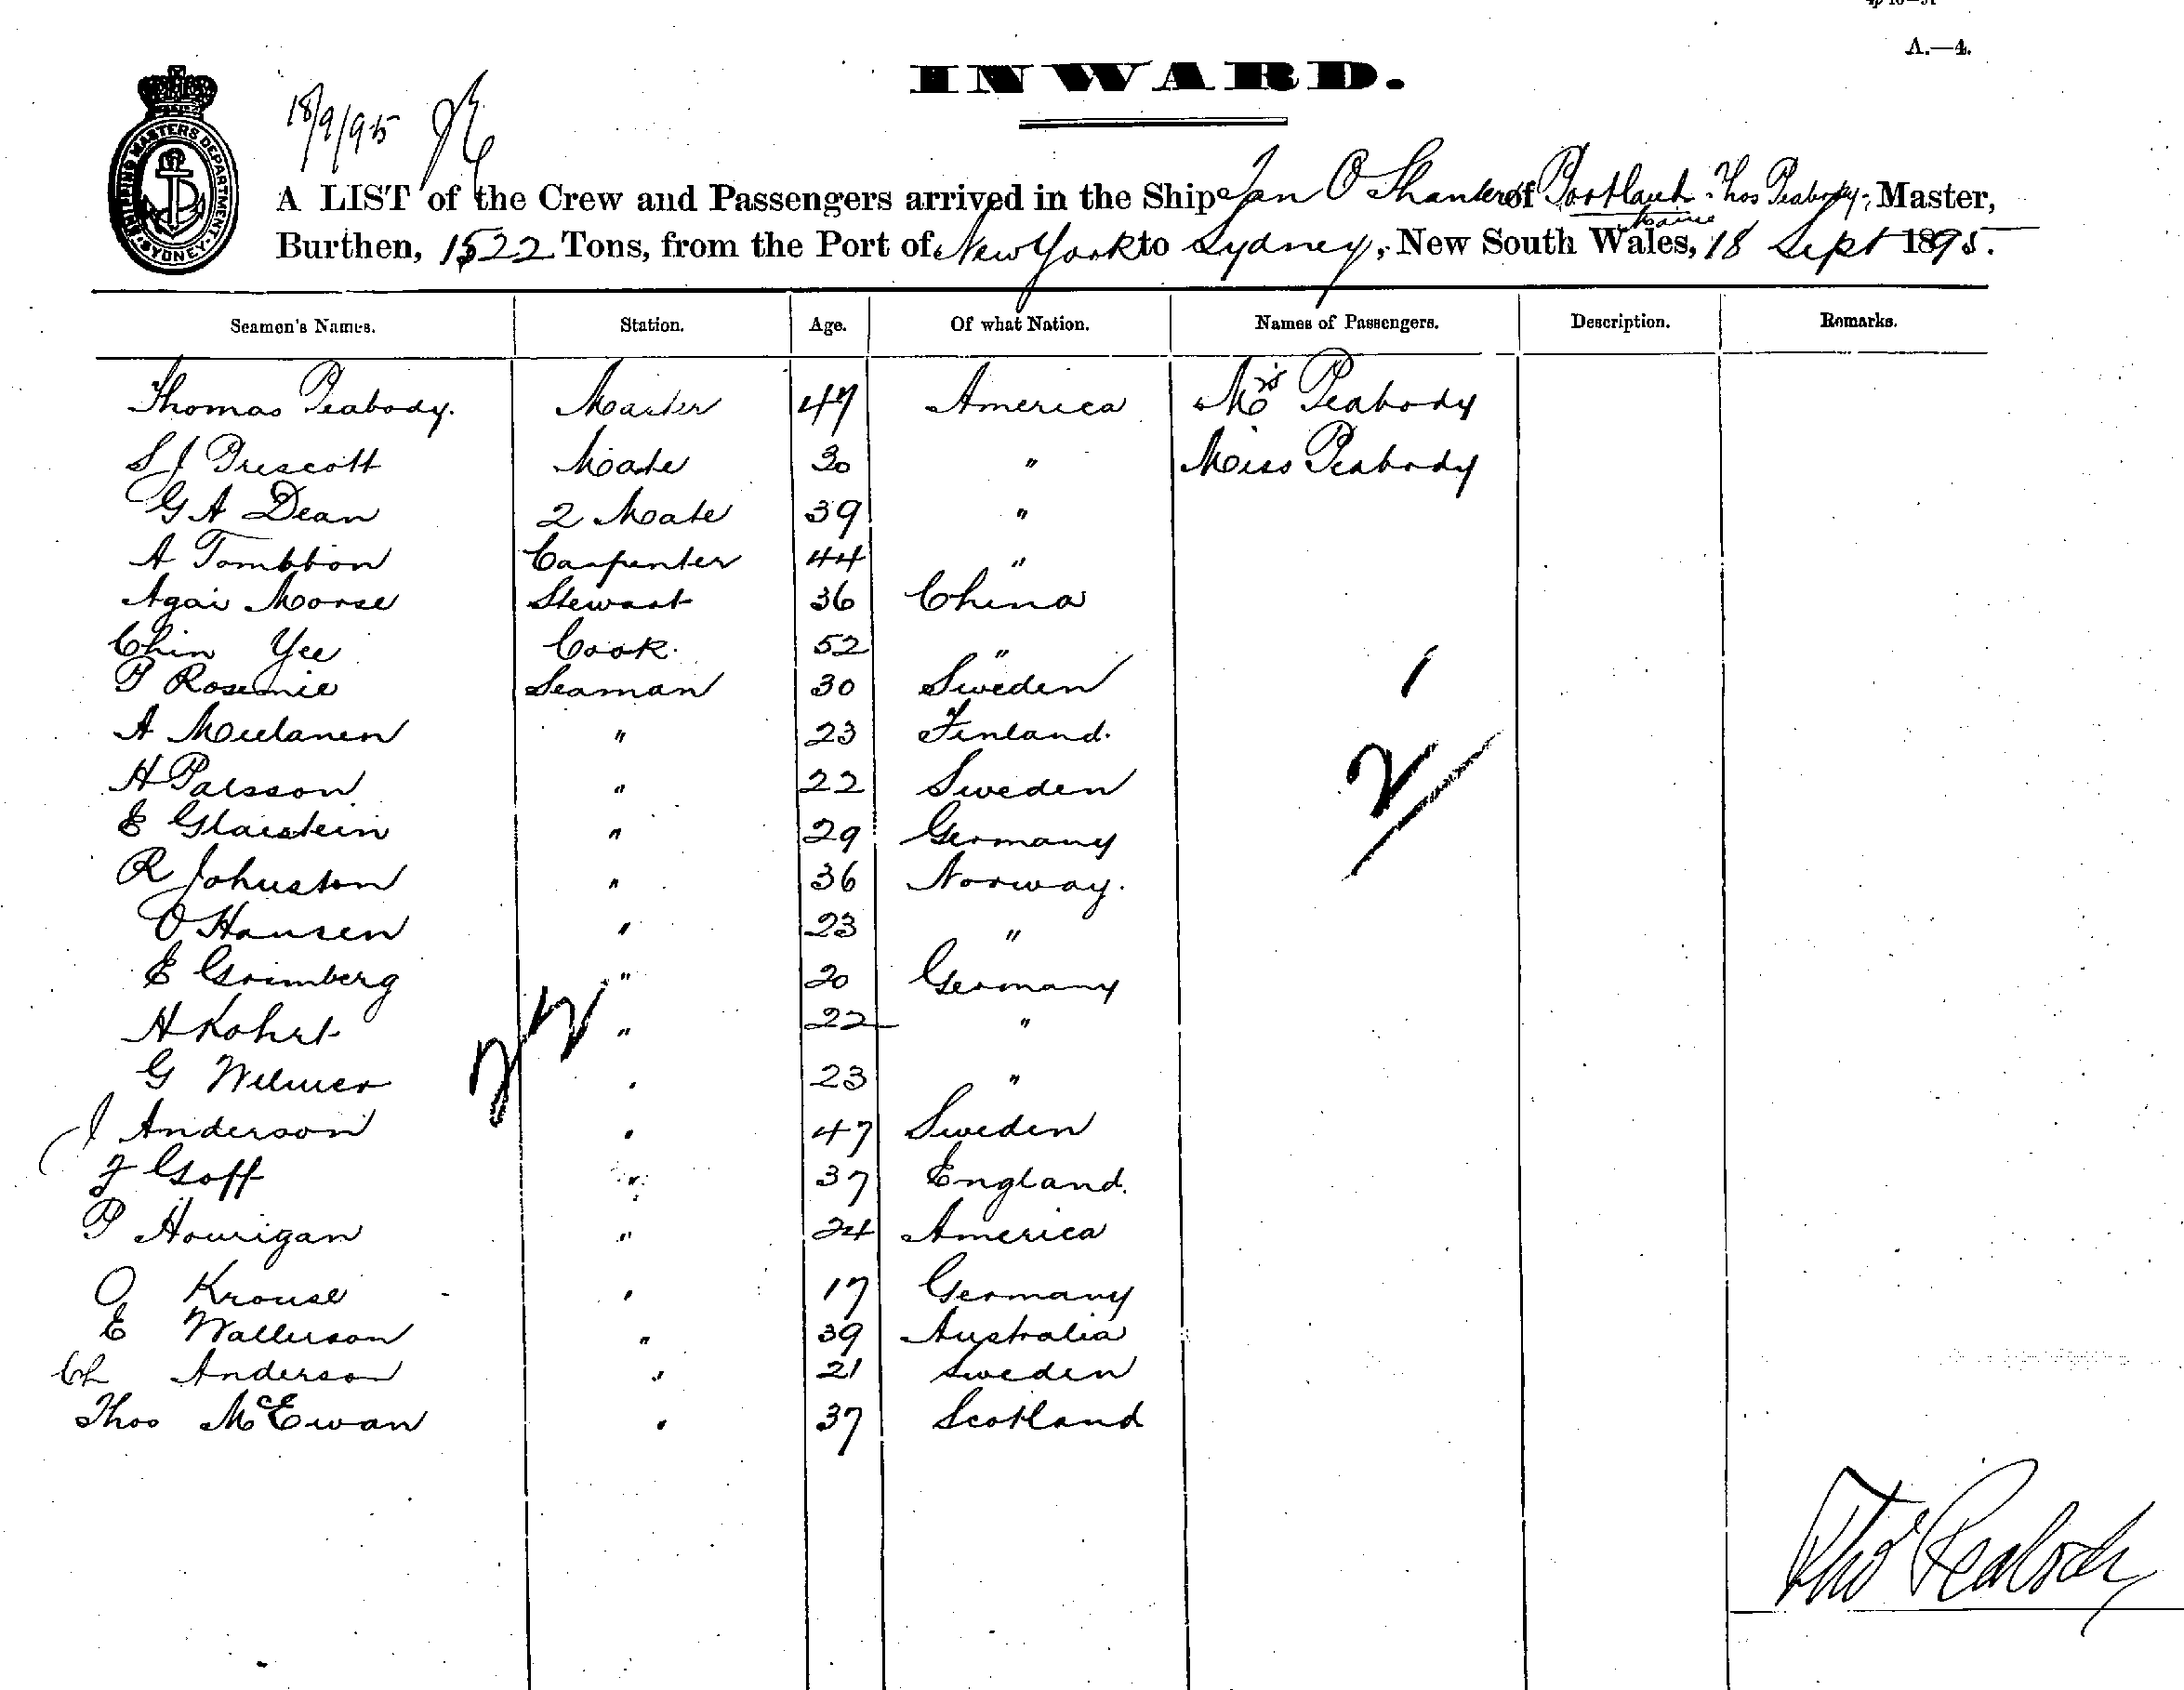 A.—4.
INWARD.
18/9/95
SHIPPING MASTERS DEPARTMENT SYDNEY
A LIST of the Crew and Passengers arrived in the Ship Tam O Shanter of Portland Maine Thos Peabody, Master,
Burthen, 1522 Tons, from the Port of New York to Sydney, New South Wales, 18 Sept 1895.
Seamen's Names. Station. Age. Of what Nation. Names of Passengers. Description. Remarks.
Thomas Peabody. Master 47 America Mrs Peabody
S J Prescott Mate 30 " Miss Peabody
G A Dean 2 Mate 39 "
A Carpenter 44 "
Agai Morse Stewart 36 China
Chin Yee Cook. 52 "
P Seaman 30 Sweden
A " 23 Finland.
H Palsson " 22 Sweden
E " 29 Germany
R Johnston " 36 Norway.
O Hansen " 23 "
E Grimberg " 20 Germany
H Kohrt " 22 "
G " 23 "
J Anderson " 47 Sweden
F Goff " 37 England.
P Hourigan " 24 America
O Krouse " 17 Germany
E Wallerson " 39 Australia
Ch Anderson " 21 Sweden
Thos McEwan " 37 Scotland
22
2
Thos Peabody